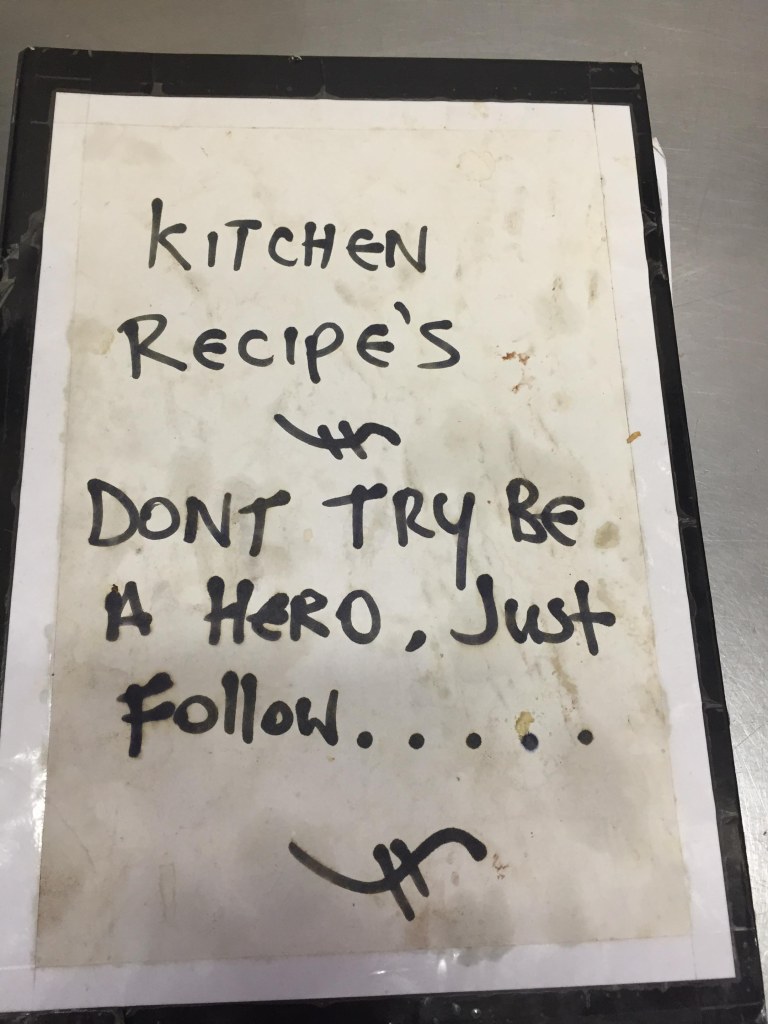 KITCHEN
RECIPE'S
DONT TRY BE
A HERO, Just
Follow.....